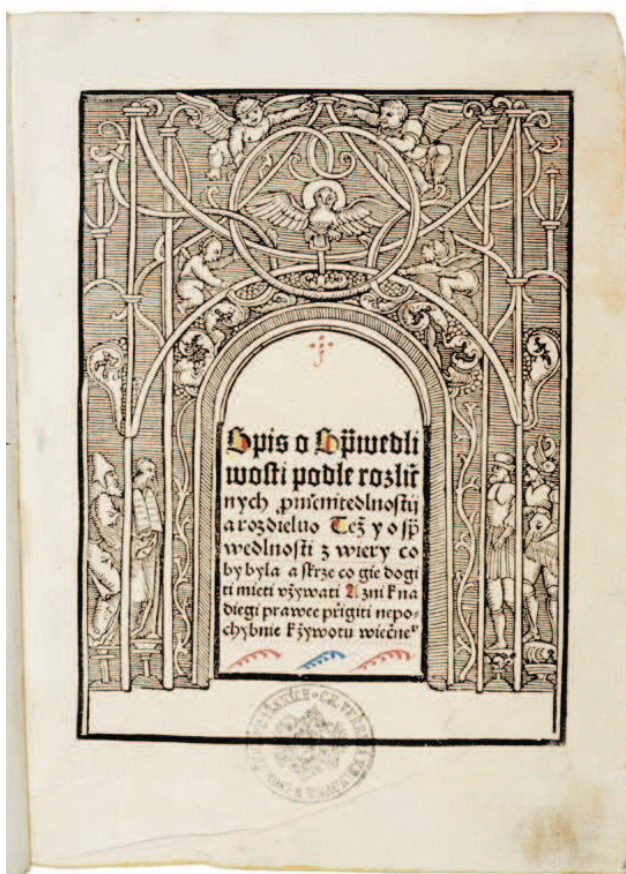 Spis o Spwedli
wosti podle rozlič
nych
a rozdieluo Tež y o sp
wedlnosti z wiery co
by byla a skrze co gie dogi
ti mieti vžywati A zni k na
diegi prawee přigiti nepo-
chybnie k žywotu wiečne